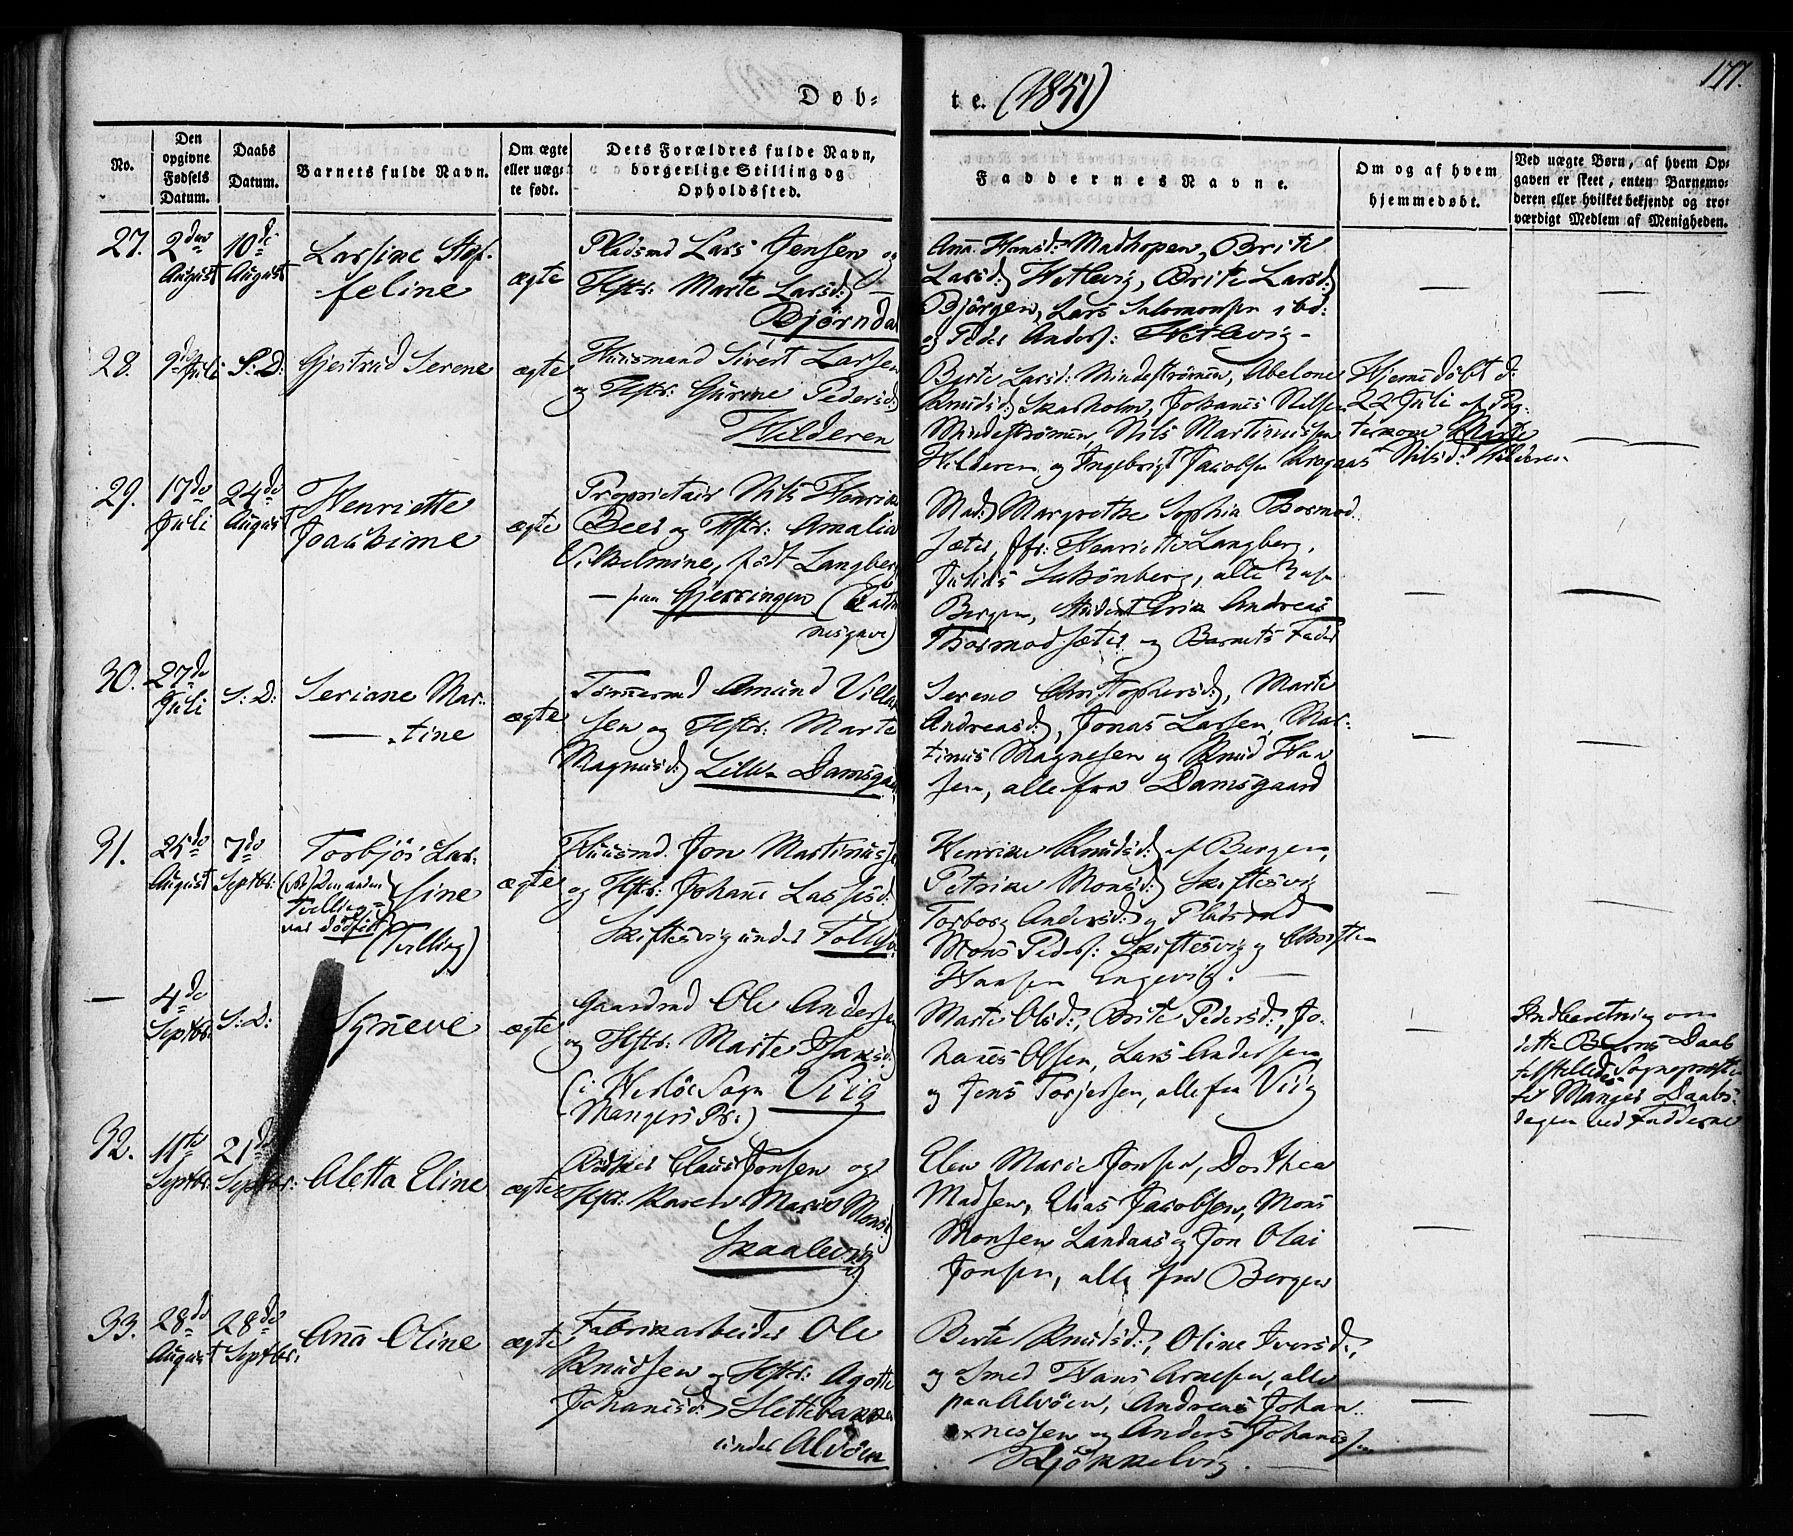 177.
Døb-
te. (1851)
No.
Den opgivne Fødsels Datum.
Daabs Datum.
Barnets fulde Navn.
Om ægte eller uægte født.
Dets Forældres fulde Navn, borgerlige Stilling og Opholdssted.
Faddernes Navne.
Om og af hvem hjemmedøbt.
Ved uægte Børn, af hvem Opgaven er skeet, enten Barnemoderen eller hvilket bekjendt og troværdigt Medlem af Menigheden.
27. 2den August
10de August
Larsine Stef-
feline
ægte
Pladsmd Lars Jensen og
Hstr: Marte Larsd:
Bjørndal
Anna Hansd: Madhopen, Brite
Larsd: Hetlevig, Brite Larsd:
Bjørgen, Lars Salomonsen ibd:
og Peder Anders: Hetlevig -
28. 9de Juli
S: D:
Gjertrud Serene
ægte
Huusmand Sivert Larsen
og Hstr: Gurine Pedersd:
Hilderen
Berte Larsd: Mindestrømen, Abelone
Knudsd: Skarholm, Johanes Nilsen
Mindestrømen, Nils Martinussen
Hilderen og Ingebrigt Jacobsen
Hjemedøbt d:
22 Juli af
Marte
Nilsd: Hilderen
29. 17de Juli
24de August
Henriette
Joachime
ægte
Proprietair Nils Henrik
Beer og Hstr: Amalia
Vilhelmine, født Langberg
- paa Gjerringen
Mad: Margrethe Sophia Thormod
sæter, Jfr: Henriette Langberg,
Julius alle 3 af
Bergen, Student Erik Andreas
Thormodsæter og Barnets Fader
30. 27de Juli
S: D:
Seriane Mar-
tine
ægte
Amund Villa
sen og Hstr: Marte
Magnusd: Lille Damsgaard
Sereno Christophersd:, Marte
Andreasd:, Jonas Larsen, Mar-
tinus Magnesen og Knud Han
sen, alle fra Damsgaard
31. 25de August
7de Septbr:
Torbjør Lar-
sine
(NB) Den anden
Tvilling
var dødfødt
(Tvilling)
ægte
Huusmd. Jon Martinus
og Hstr: Johane Lassesd:
Skiftesvig under
Henrike Knudsd: af Bergen,
Petrike Monsd: Skiftesvig
Torborg Andersd: og Pladsmd
Mons Peders: Skiftesvig og Christen
Hansen
- 4de Septbr:
S: D:
Syneve
ægte
Gaardmd Ole Andersen
og Hstr: Marte Isaksd:
(i Herlöe Sogn Viig
Mangers Pr:)
Marte Olsd:, Brite Pedersd:, Jo-
hanes Olsen, Lars Andersen
og Jens Torjersen, alle fra Viig
Indberetning om
dette Barns Daab
tilstilledes Sognepræsten
til Manger Daabs-
dagen ved Fadderne
32. 11te Septbr:
21de Septbr:
Aletta Eline
ægte
Claus Jonsen og
Hstr: Karen Marie Monsd:
Skaalevig
Elen Marie Jonsen, Dorthea
Madsen, Elias Jacobsen, Mons
Monsen Landaas og Jon Olai
Jonsen, alle fra Bergen
33. 28de August
28de Septbr.
Ana Oline
ægte
Fabrikarbeider Ole
Knudsen og Hstr: Agathe
Johanesd: Slettebakken
under Alvøen
Berte Knudsd:, Oline Iversd:,
og Smed Hans Arnesen, alle
paa Alvøen, Andreas Johan-
nessen og Anders Johannessen
Kjøkkelvig.